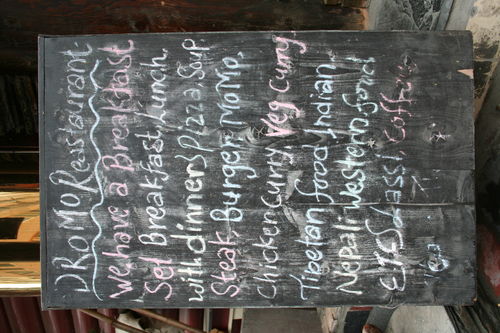 DROMOR Restaurant
We have a Breakfast
Set Breakfast, Lunch,
with dinners Pizza, Soup
Steak, Burger, MoMo,
Chicken Curry Veg Curry
Tibetan food Indian
Nepali western food
Lassi Coffee